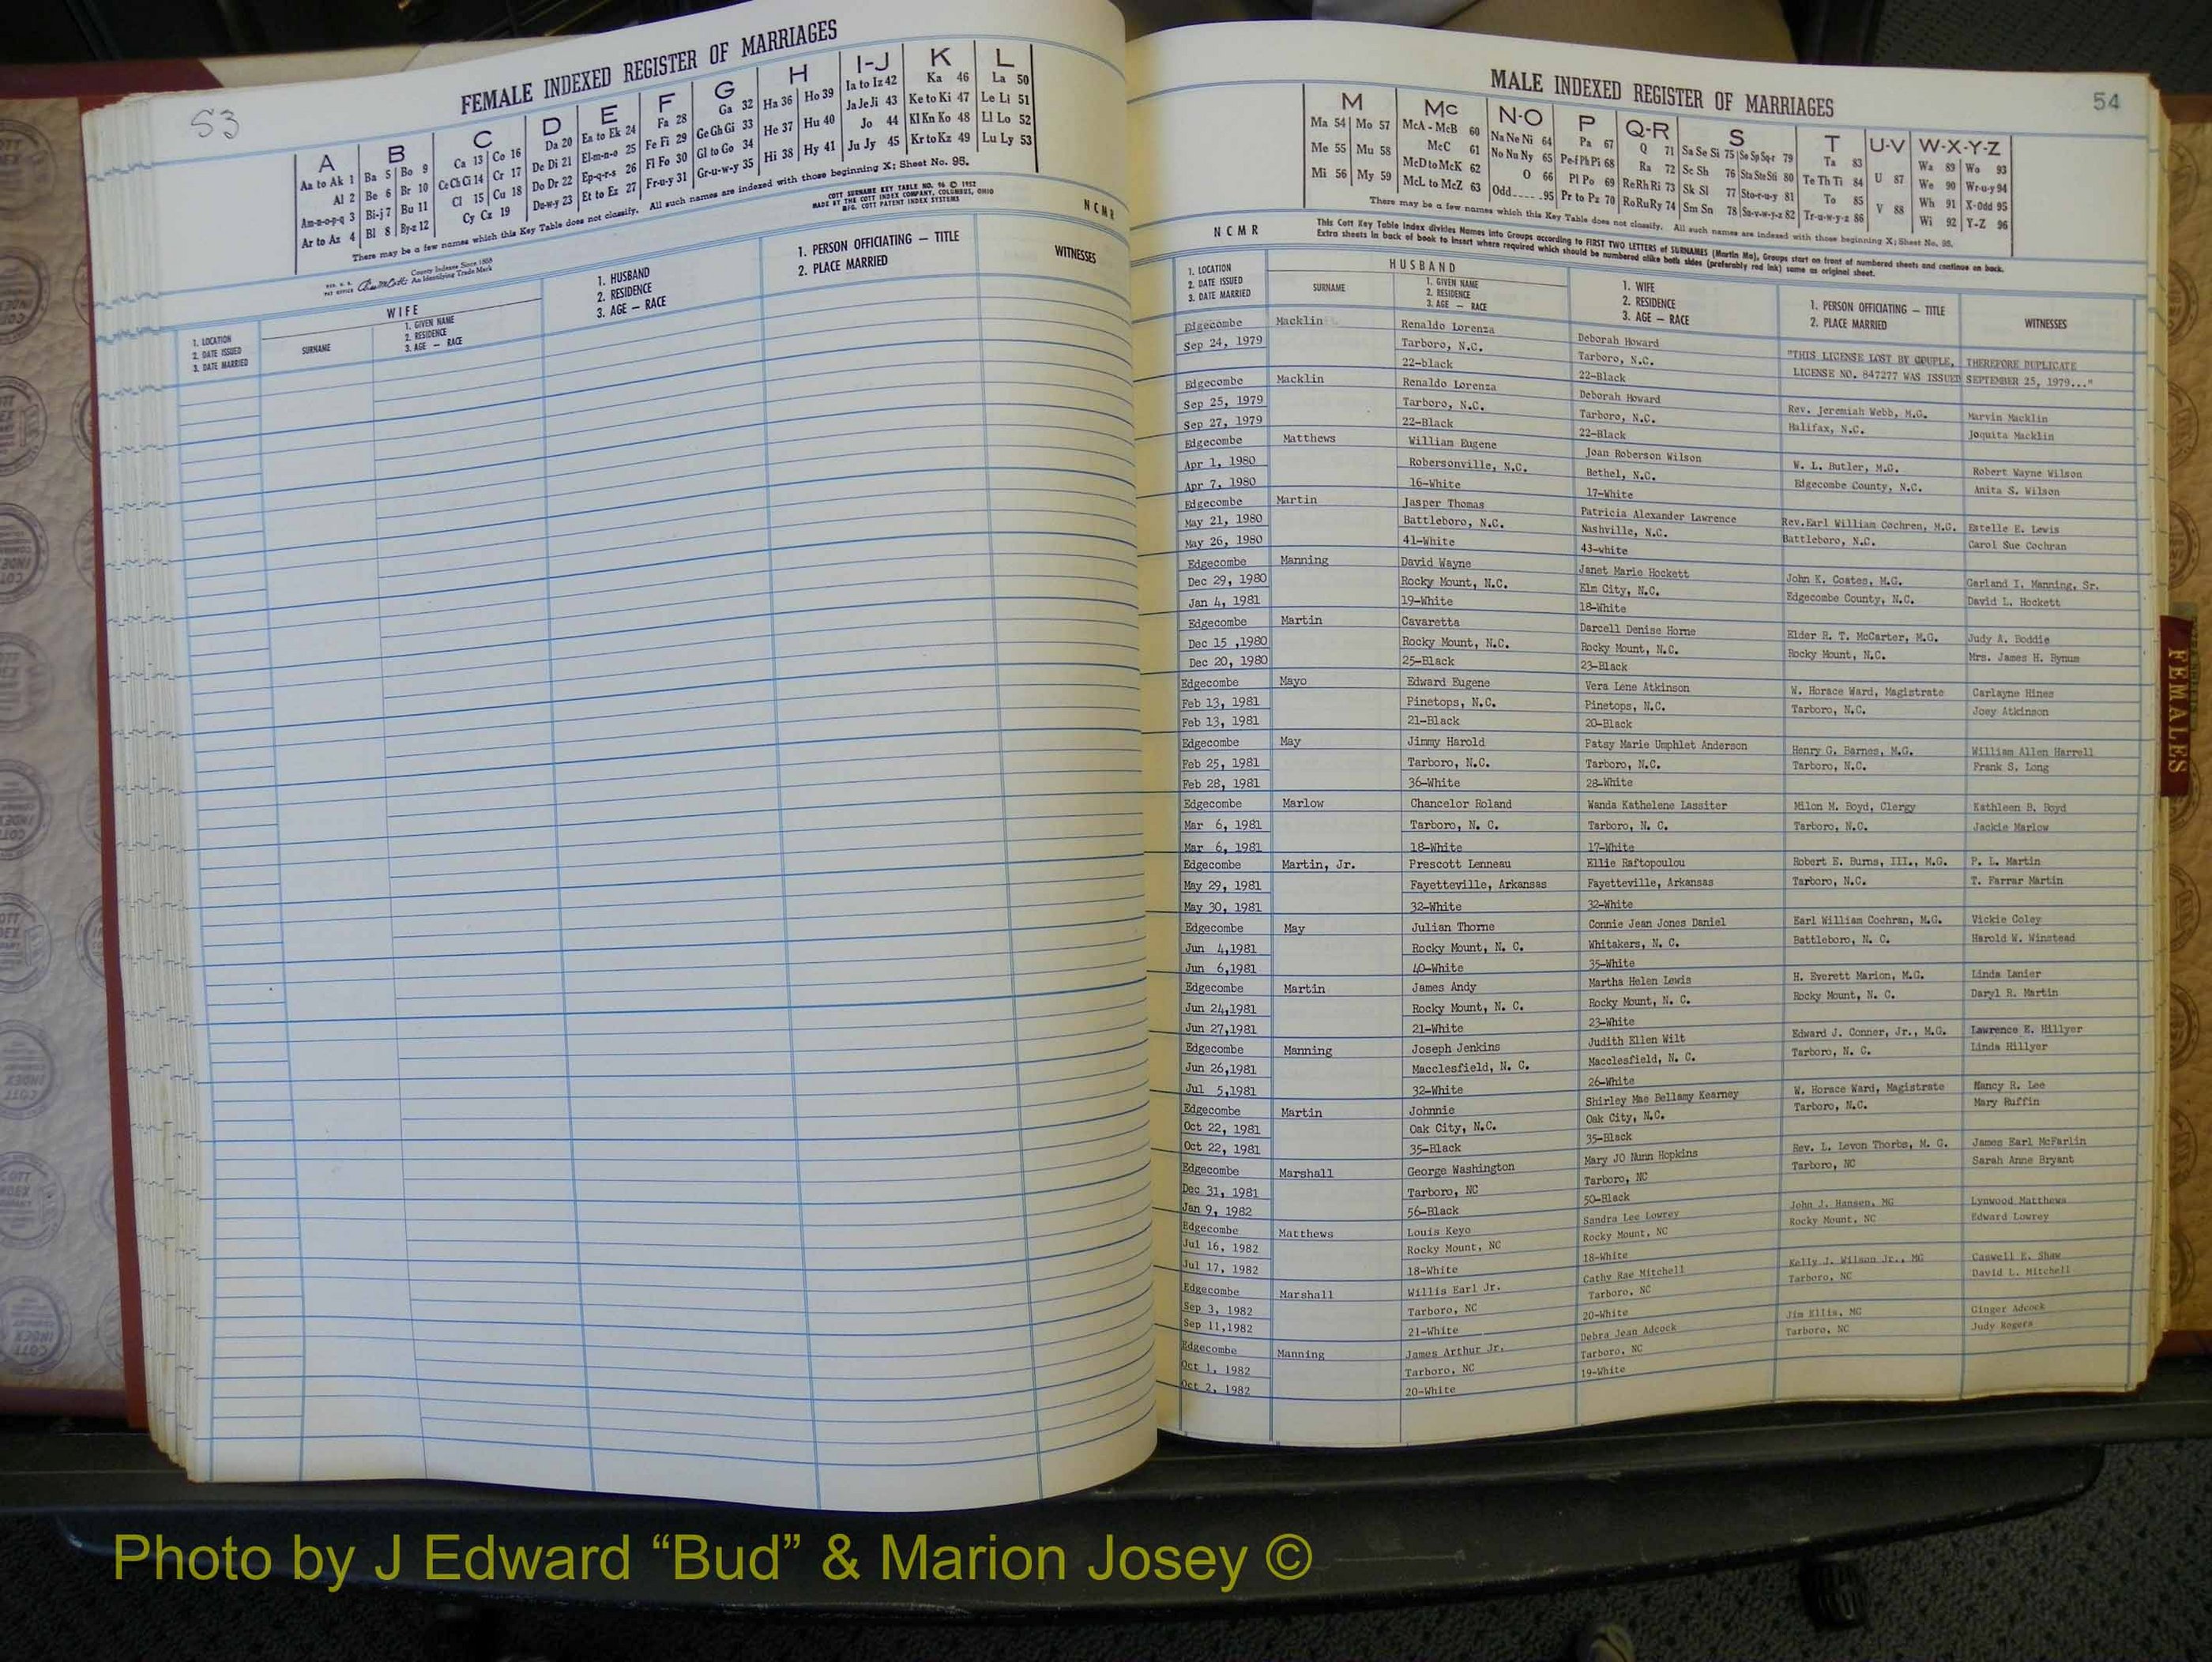 53
FEMALE INDEXED REGISTER OF MARRIAGES
A B C D E F G H I-J K L
Aa to Ak 1 Ba 5 Bo 9 Ca 13 Co 16 Da 20 Ea to Ek 24 Fa 28 Ga 32 Ha 36 Ho 39 Ia to Iz 42 Ka 46 La 50
Al 2 Be 6 Br 10 Ce Ch Ci 14 Cr 17 De Di 21 El-m-n-o 25 Fe Fi 29 Ge Gh Gi 33 He 37 Hu 40 Ja Je Ji 43 Ke to Ki 47 Le Li 51
Am-n-o-p-q 3 Bi-j 7 Bu 11 Cl 15 Cu 18 Do Dr 22 Ep-q-r-s 26 Fl Fo 30 Gl to Go 34 Hi 38 Hy 41 Jo 44 Kl Kn Ko 48 Ll Lo 52
Ar to Az 4 Bl 8 By-z 12 Cy Cz 19 Du-w-y 23 Et to Ez 27 Fr-u-y 31 Gr-u-w-y 35 Ju Jy 45 Kr to Kz 49 Lu Ly 53
There may be a few names which this Key Table does not classify. All such names are indexed with those beginning X; Sheet No. 95.
County Indexes Since 1888
An Identifying Trade Mark
COTT SURNAME KEY TABLE NO. 96 © 1952
MADE BY THE COTT INDEX COMPANY, COLUMBUS, OHIO
MFG. COTT PATENT INDEX SYSTEMS
NCMR
1. LOCATION
2. DATE ISSUED
3. DATE MARRIED
WIFE
SURNAME
1. GIVEN NAME
2. RESIDENCE
3. AGE — RACE
1. HUSBAND
2. RESIDENCE
3. AGE — RACE
1. PERSON OFFICIATING — TITLE
2. PLACE MARRIED
WITNESSES
MALE INDEXED REGISTER OF MARRIAGES
54
M Mc N-O P Q-R S T U-V W-X-Y-Z
Ma 54 Mo 57 McA - McB 60 Na Ne Ni 64 Pa 67 Q 71 Sa Se Si 75 So Sp Sq-r 79 Ta 83 Wa 89 Wo 93
Me 55 Mu 58 McC 61 No Nu Ny 65 Pe-f Ph Pi 68 Ra 72 Sc Sh 76 Sta Ste Sti 80 Te Th Ti 84 U 87 We 90 Wr-u-y 94
Mi 56 My 59 McD to McK 62 O 66 Pl Po 69 Re Rh Ri 73 Sk Sl 77 Sto-r-u-y 81 To 85 Wh 91 X-Odd 95
McL to McZ 63 Odd 95 Pr to Pz 70 Ro Ru Ry 74 Sm Sn 78 Su-v-w-y-z 82 Tr-u-w-y-z 86 V 88 Wi 92 Y-Z 96
There may be a few names which this Key Table does not classify. All such names are indexed with those beginning X; Sheet No. 95.
NCMR
This Cott Key Table Index divides Names into Groups according to FIRST TWO LETTERS of SURNAMES (Martin Ma), Groups start on front of numbered sheets and continue on back.
Extra sheets in back of book to insert where required which should be numbered alike both sides (preferably red ink) same as original sheet.
1. LOCATION
2. DATE ISSUED
3. DATE MARRIED
HUSBAND
SURNAME
1. GIVEN NAME
2. RESIDENCE
3. AGE — RACE
1. WIFE
2. RESIDENCE
3. AGE — RACE
1. PERSON OFFICIATING — TITLE
2. PLACE MARRIED
WITNESSES
Edgecombe Macklin Renaldo Lorenza Deborah Howard
Sep 24, 1979 Tarboro, N.C. Tarboro, N.C. "THIS LICENSE LOST BY COUPLE, THEREFORE DUPLICATE
22-black 22-Black LICENSE NO. 847277 WAS ISSUED SEPTEMBER 25, 1979..."
Edgecombe Macklin Renaldo Lorenza Deborah Howard
Sep 25, 1979 Tarboro, N.C. Tarboro, N.C. Rev. Jeremiah Webb, M.G. Marvin Macklin
Sep 27, 1979 22-Black 22-Black Halifax, N.C. Joquita Macklin
Edgecombe Matthews William Eugene Joan Roberson Wilson
Apr 1, 1980 Robersonville, N.C. Bethel, N.C. W. L. Butler, M.G. Robert Wayne Wilson
Apr 7, 1980 16-White 17-White Edgecombe County, N.C. Anita S. Wilson
Edgecombe Martin Jasper Thomas Patricia Alexander Lawrence
May 21, 1980 Battleboro, N.C. Nashville, N.C. Rev.Earl William Cochren, M.G. Estelle E. Lewis
May 26, 1980 41-White 43-white Battleboro, N.C. Carol Sue Cochran
Edgecombe Manning David Wayne Janet Marie Hockett
Dec 29, 1980 Rocky Mount, N.C. Elm City, N.C. John K. Coates, M.G. Garland I. Manning, Sr.
Jan 4, 1981 19-White 18-White Edgecombe County, N.C. David L. Hockett
Edgecombe Martin Cavaretta Darcell Denise Horne
Dec 15 ,1980 Rocky Mount, N.C. Rocky Mount, N.C. Elder R. T. McCarter, M.G. Judy A. Boddie
Dec 20, 1980 25-Black 23-Black Rocky Mount, N.C. Mrs. James H. Bynum
Edgecombe Mayo Edward Eugene Vera Lene Atkinson
Feb 13, 1981 Pinetops, N.C. Pinetops, N.C. W. Horace Ward, Magistrate Carlayne Hines
Feb 13, 1981 21-Black 20-Black Tarboro, N.C. Joey Atkinson
Edgecombe May Jimmy Harold Patsy Marie Umphlet Anderson
Feb 25, 1981 Tarboro, N.C. Tarboro, N.C. Henry G. Barnes, M.G. William Allen Harrell
Feb 28, 1981 36-White 28-White Tarboro, N.C. Frank S. Long
Edgecombe Marlow Chancelor Roland Wanda Kathelene Lassiter Milon M. Boyd, Clergy Kathleen B. Boyd
Mar 6, 1981 Tarboro, N. C. Tarboro, N. C. Tarboro, N.C. Jackie Marlow
Mar 6, 1981 18-White 17-White
Edgecombe Martin, Jr. Prescott Lenneau Ellie Raftopoulou Robert E. Burns, III., M.G. P. L. Martin
May 29, 1981 Fayetteville, Arkansas Fayetteville, Arkansas Tarboro, N.C. T. Farrar Martin
May 30, 1981 32-White 32-White
Edgecombe May Julian Thorne Connie Jean Jones Daniel Earl William Cochran, M.G. Vickie Coley
Jun 4,1981 Rocky Mount, N. C. Whitakers, N. C. Battleboro, N. C. Harold W. Winstead
Jun 6,1981 40-White 35-White
Edgecombe Martin James Andy Martha Helen Lewis H. Everett Marion, M.G. Linda Lanier
Jun 24,1981 Rocky Mount, N. C. Rocky Mount, N. C. Rocky Mount, N. C. Daryl R. Martin
Jun 27,1981 21-White 23-White
Edgecombe Manning Joseph Jenkins Judith Ellen Wilt Edward J. Conner, Jr., M.G. Lawrence E. Hillyer
Jun 26,1981 Macclesfield, N. C. Macclesfield, N. C. Tarboro, N. C. Linda Hillyer
Jul 5,1981 32-White 26-White
Edgecombe Martin Johnnie Shirley Mae Bellamy Kearney W. Horace Ward, Magistrate Nancy R. Lee
Oct 22, 1981 Oak City, N.C. Oak City, N.C. Tarboro, N.C. Mary Ruffin
Oct 22, 1981 35-Black 35-Black
Edgecombe Marshall George Washington Mary JO Nunn Hopkins Rev. L. Levon Thorbs, M. G. James Earl McFarlin
Dec 31, 1981 Tarboro, NC Tarboro, NC Tarboro, NC Sarah Anne Bryant
Jan 9, 1982 56-Black 50-Black
Edgecombe Matthews Louis Keyo Sandra Lee Lowrey John J. Hansen, MG Lynwood Matthews
Jul 16, 1982 Rocky Mount, NC Rocky Mount, NC Rocky Mount, NC Edward Lowrey
Jul 17, 1982 18-White 18-White
Edgecombe Marshall Willis Earl Jr. Cathy Rae Mitchell Kelly J. Wilson Jr., MG Caswell E. Shaw
Sep 3, 1982 Tarboro, NC Tarboro, NC Tarboro, NC David L. Mitchell
Sep 11,1982 21-White 20-White
Edgecombe Manning James Arthur Jr. Debra Jean Adcock Jim Ellis, MG Ginger Adcock
Oct 1, 1982 Tarboro, NC Tarboro, NC Tarboro, NC Judy Rogers
Oct 2, 1982 20-White 19-White
FEMALES
Photo by J Edward “Bud” & Marion Josey ©